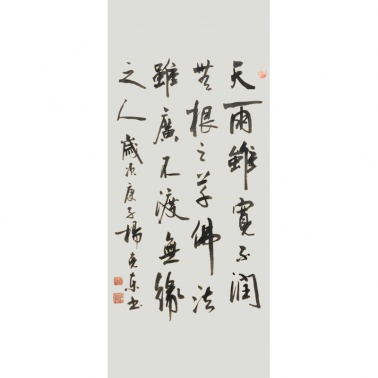 天雨雖寬不潤
無根之草佛法
雖廣不渡無緣
之人 歲次庚子楊克东书